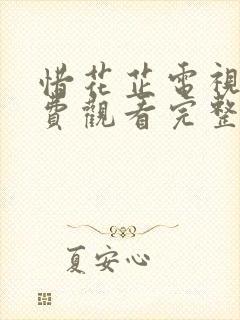 惜花芷電視
費觀看完整
夏安心